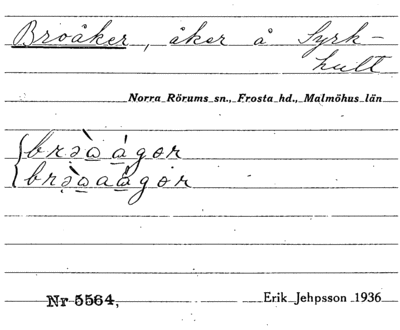 Broåker, åker å Syrk-
hult
Norra Rörums sn., Frosta hd., Malmöhus län
brə̀ɷ ágor
brə̀ɷaágor
Nr 5564,
Erik Jehpsson 1936